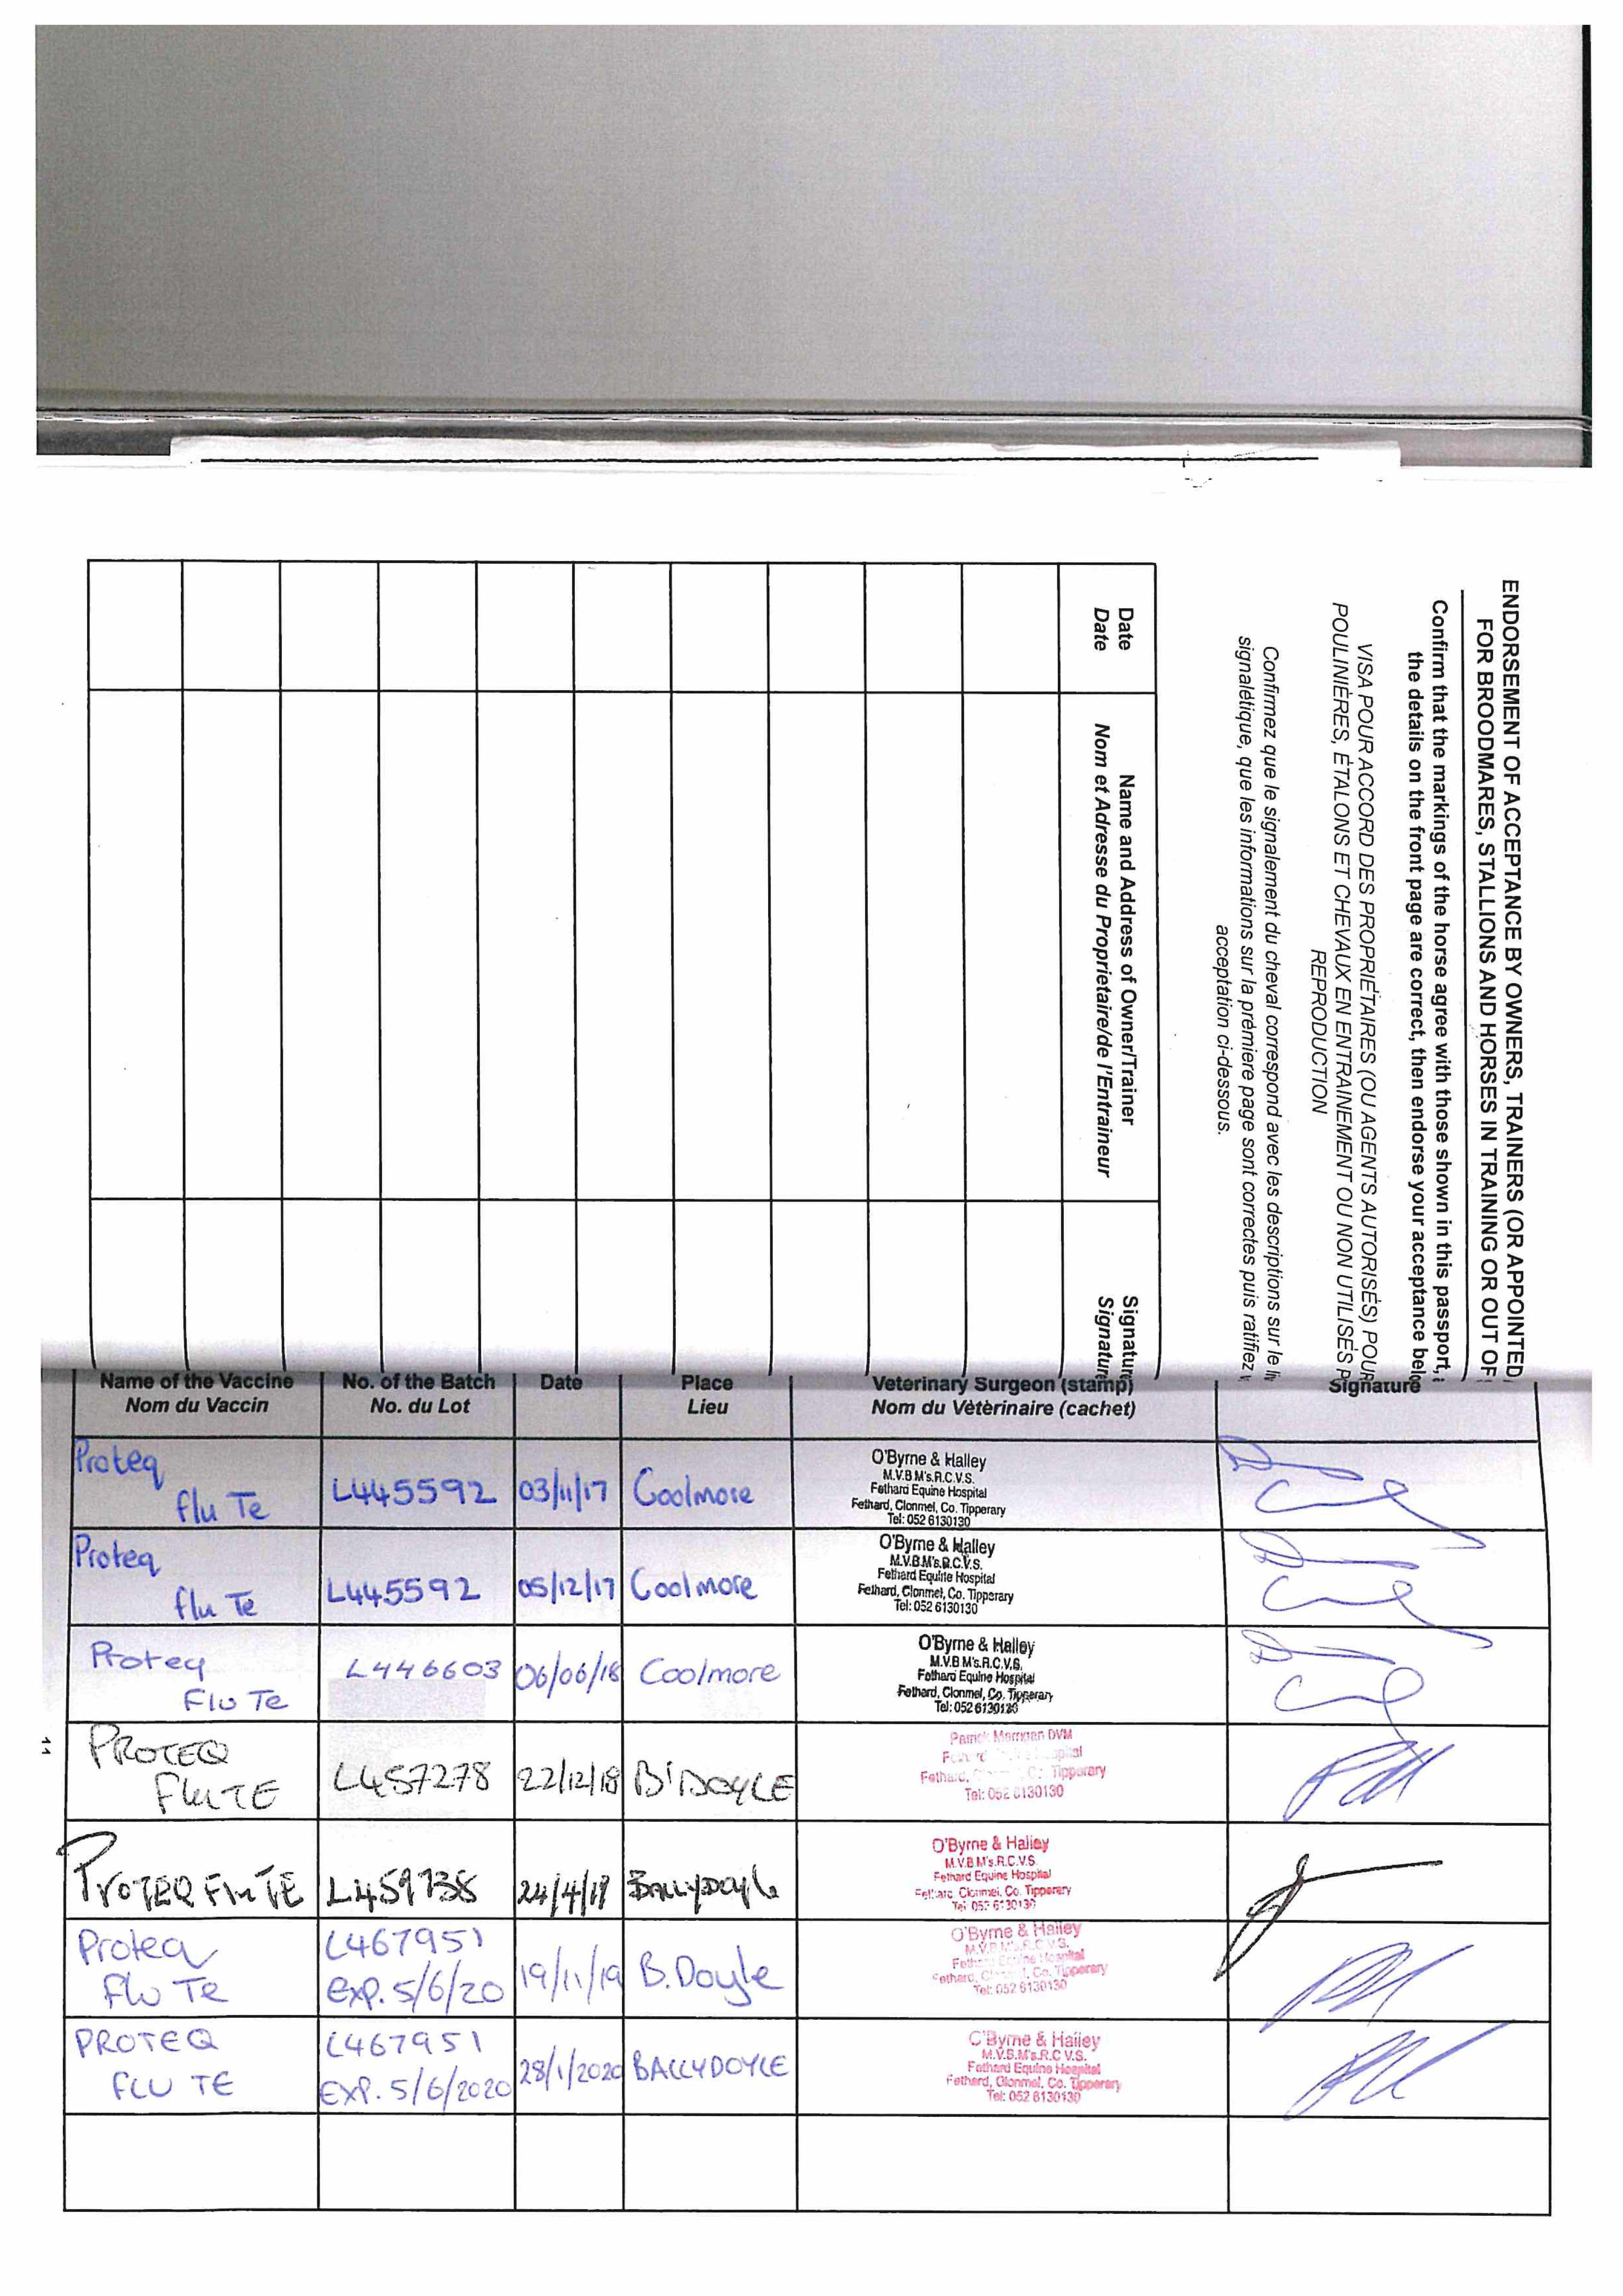 ENDORSEMENT OF ACCEPTANCE BY OWNERS, TRAINERS (OR APPOINTED
FOR BROODMARES, STALLIONS AND HORSES IN TRAINING OR OUT OF
Confirm that the markings of the horse agree with those shown in this passport,
the details on the front page are correct, then endorse your acceptance
VISA POUR ACCORD DES PROPRIÉTAIRES (OU AGENTS AUTORISÉS) POUR
POULINIÈRES, ÉTALONS ET CHEVAUX EN ENTRAINEMENT OU NON UTILISÉS
REPRODUCTION
Confirmez que le signalement du cheval correspond avec les descriptions sur le
signalétique, que les informations sur la prémiere page sont correctes puis ratifiez
acceptation ci-dessous.
Date Name and Address of Owner/Trainer Signature
Date Nom et Adresse du Proprietaire/de l'Entraineur Signature
Name of the Vaccine No. of the Batch Date Place Veterinary Surgeon (stamp) Signature
Nom du Vaccin No. du Lot Lieu Nom du Vètèrinaire (cachet)
Proteq
flu Te L445592 03/11/17 Coolmore
O'Byrne & Halley
M.V.B M's.R.C.V.S.
Fethard Equine Hospital
Fethard, Clonmel, Co. Tipperary
Tel: 052 6130130
Proteq
flu Te L445592 05/12/17 Coolmore
O'Byrne & Halley
M.V.B.M's.R.C.V.S.
Fethard Equine Hospital
Fethard, Clonmel, Co. Tipperary
Tel: 052 6130130
Proteq
Flu Te L446603 06/06/18 Coolmore
O'Byrne & Halley
M.V.B M's.R.C.V.S.
Fethard Equine Hospital
Fethard, Clonmel, Co. Tipperary
Tel: 052 6130130
11
PROTEQ
Flu TE L457278 22/12/18 B'DOYLE
Patrick DVM
Fethard, Tipperary
Tel: 052 6130130
PROTEQ Flu TE L459738 24/4/19 Ballydoyle
O'Byrne & Halley
M.V.B M's.R.C.V.S.
Fethard Equine Hospital
Fethard, Clonmel, Co. Tipperary
Tel: 052 6130130
Proteq
Flu Te
L467951
EXP. 5/6/20
19/11/19 B.Doyle
O'Byrne & Halley
Fethard, Co. Tipperary
Tel: 052 6130130
PROTEQ
FLU TE
L467951
EXP. 5/6/2020
28/1/2020 BALLYDOYLE
O'Byrne & Halley
M.V.B.M's.R.C V.S.
Fethard Equine Hospital
Fethard, Clonmel, Co. Tipperary
Tel: 052 6130130